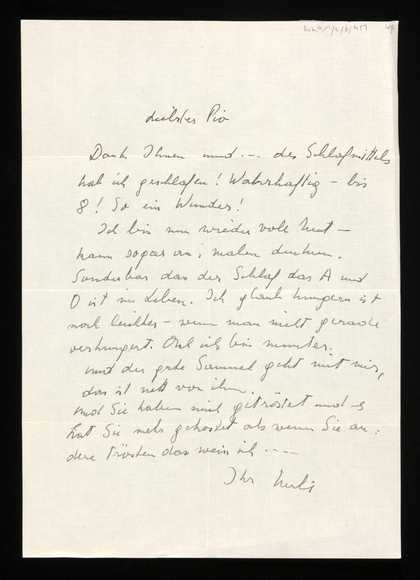 liebster Pio
Dank Ihnen und ... des Schlafmittels
hab ich geschlafen! Wahrhaftig – bis
8! So ein Wunder!
Ich bin nun wieder voll Mut –
kann sogar an's malen denken.
Sonderbar das der Schlaf das A und
O ist im Leben. Ich glaub hungern ist
noch leichter – wenn man nicht gerade
verhungert. Och ich bin munter.
und der gute Samuel geht mit mir,
das ist nett von ihm.
und Sie haben mich getröstet und es
hat Sie mehr gekostet als wenn Sie an:
dere trösten das weis ich ....
Ihr